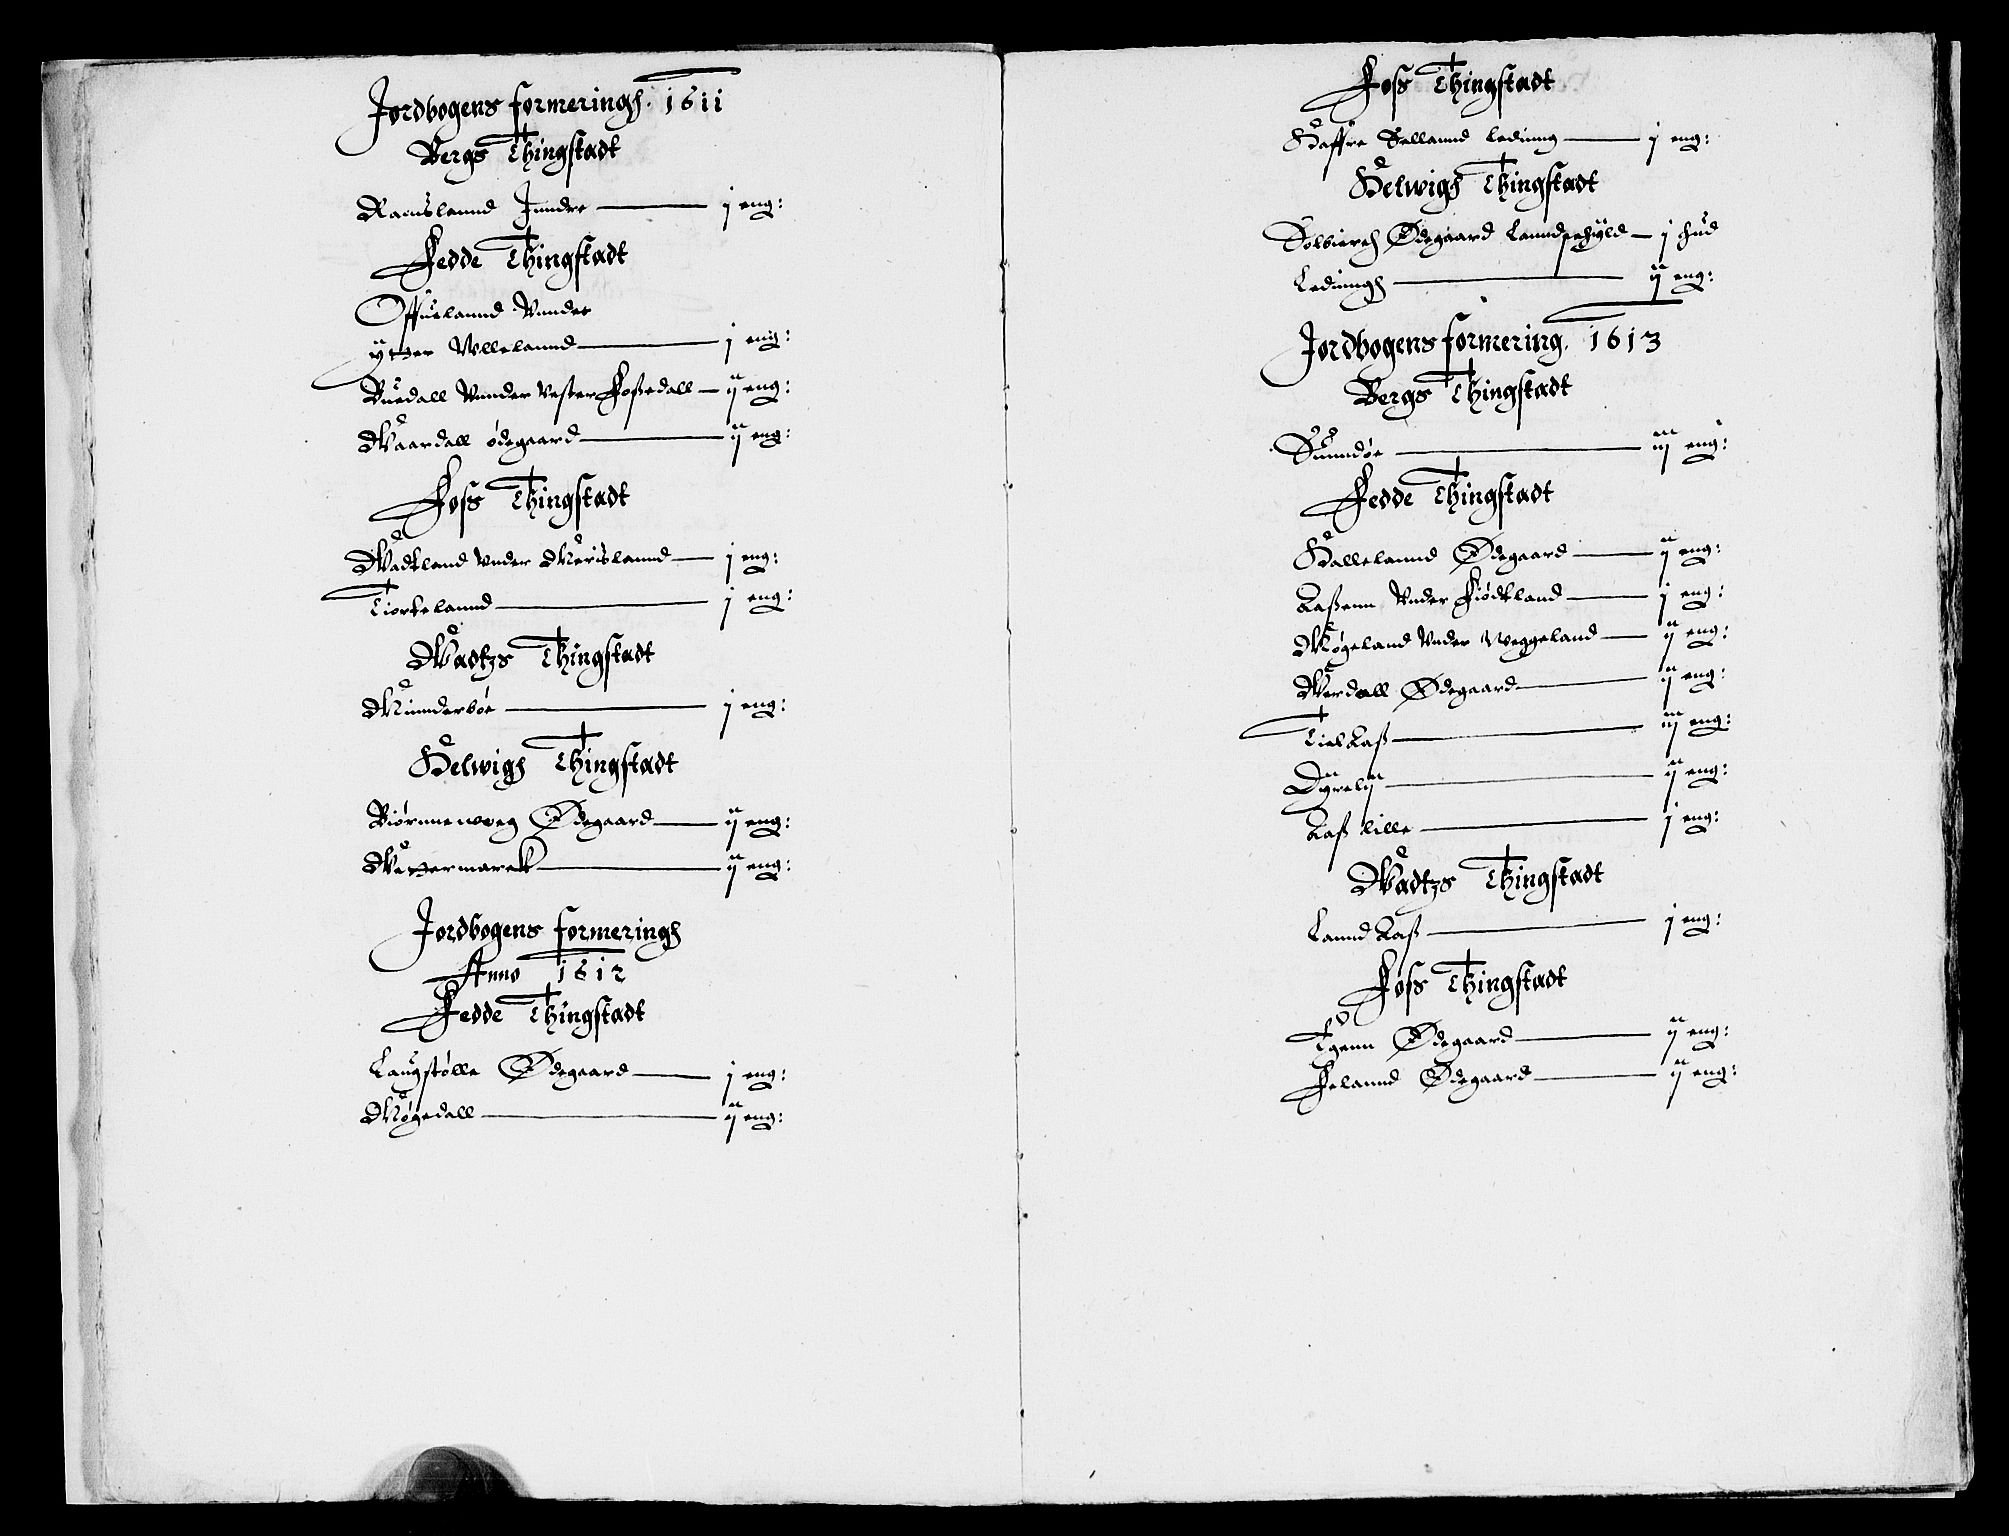 Jordbogens formeringh. 1611
Bergs Thingstadt
Ramslannd Inndre — j eng:
Fedde Thingstadt
Offuelannd Vnnder
ytter Vllelannd — j eng:
Buedall Vnnder Vester Foßedall — ij eng:
Waardall ødegaard — ij eng:
Foss Thingstadt
Wadtland vnder Merislannd — j eng:
Tiorkelannd — j eng:
Wadtzs Thingstadt
Minnderbøe — j eng:
Helwigh Thingstadt
Biørnneweg Ødegaard — ij eng:
Wettermarck — ij eng:
Jordbogens formeringh
Anno 1612
Fedde Thingstadt
Laugstølle Ødegaard — j eng:
Møgedall — ij eng:
Foss Thingstadt
Haffre Sellannd leding — j eng:
Helwigh Thingstadt
Solbierch Ødegaard Lanndschyld — j hud
Ledingh — ij eng:
Jordbogens formering. 1613
Bergs Thingstadt
Sunndøe — iij eng:
Fedde Thingstadt
Hallelannd Ødegaard — ij eng:
Aaßenn Vnder Fiødtland — j eng:
Møgeland Vnder Weggeland — ij eng:
Werdall Ødegaard — ij eng:
Tiel Aaß — iij eng:
Dyrelij — ij eng:
Aaß lille — j eng:
Wadtzs Thingstadt
Lannd Aaß — j eng:
Foss Thingstadt
Egenn Ødegaard — ij eng:
Felannd Ødegaard — ij eng: